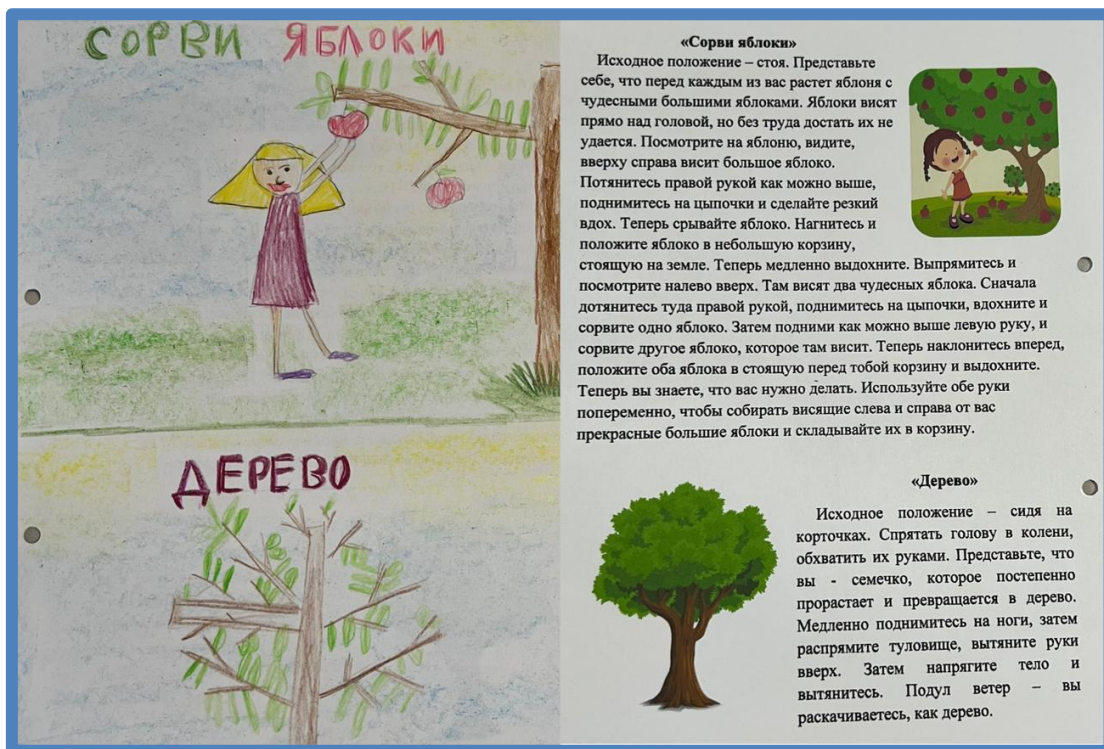 СОРВИ ЯБЛОКИ
ДЕРЕВО
«Сорви яблоки»
Исходное положение – стоя. Представьте
себе, что перед каждым из вас растет яблоня с
чудесными большими яблоками. Яблоки висят
прямо над головой, но без труда достать их не
удается. Посмотрите на яблоню, видите,
вверху справа висит большое яблоко.
Потянитесь правой рукой как можно выше,
поднимитесь на цыпочки и сделайте резкий
вдох. Теперь срывайте яблоко. Нагнитесь и
положите яблоко в небольшую корзину,
стоящую на земле. Теперь медленно выдохните. Выпрямитесь и
посмотрите налево вверх. Там висят два чудесных яблока. Сначала
дотянитесь туда правой рукой, поднимитесь на цыпочки, вдохните и
сорвите одно яблоко. Затем подними как можно выше левую руку, и
сорвите другое яблоко, которое там висит. Теперь наклонитесь вперед,
положите оба яблока в стоящую перед тобой корзину и выдохните.
Теперь вы знаете, что вас нужно делать. Используйте обе руки
попеременно, чтобы собирать висящие слева и справа от вас
прекрасные большие яблоки и складывайте их в корзину.
«Дерево»
Исходное положение – сидя на
корточках. Спрятать голову в колени,
обхватить их руками. Представьте, что
вы - семечко, которое постепенно
прорастает и превращается в дерево.
Медленно поднимитесь на ноги, затем
распрямите туловище, вытяните руки
вверх. Затем напрягите тело и
вытянитесь. Подул ветер – вы
раскачиваетесь, как дерево.